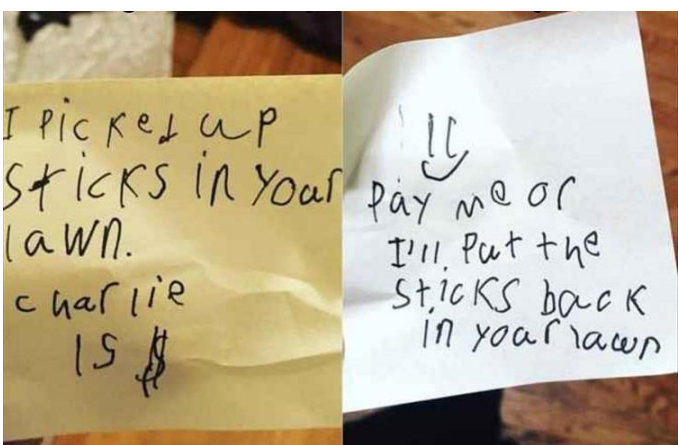 I Picked up
Sticks in your
lawn.
charlie
15 $
Pay me or
I'll Put the
Sticks back
in your lawn